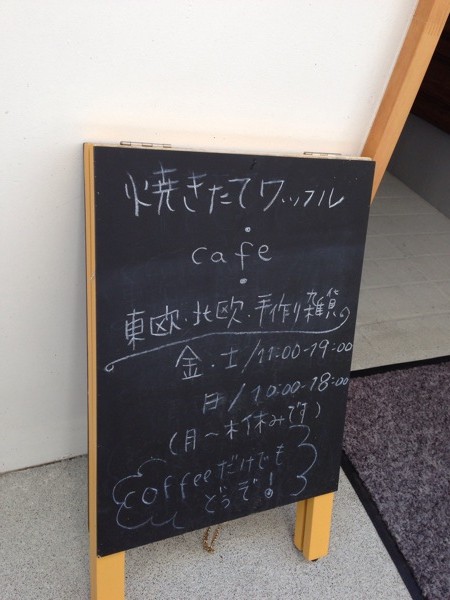 焼きたてワッフル
・
cafe
・
東欧・北欧・手作り雑貨
金・土/11:00-19:00
日/10:00-18:00
(月〜木休みです)
coffeeだけでも
どうぞ!